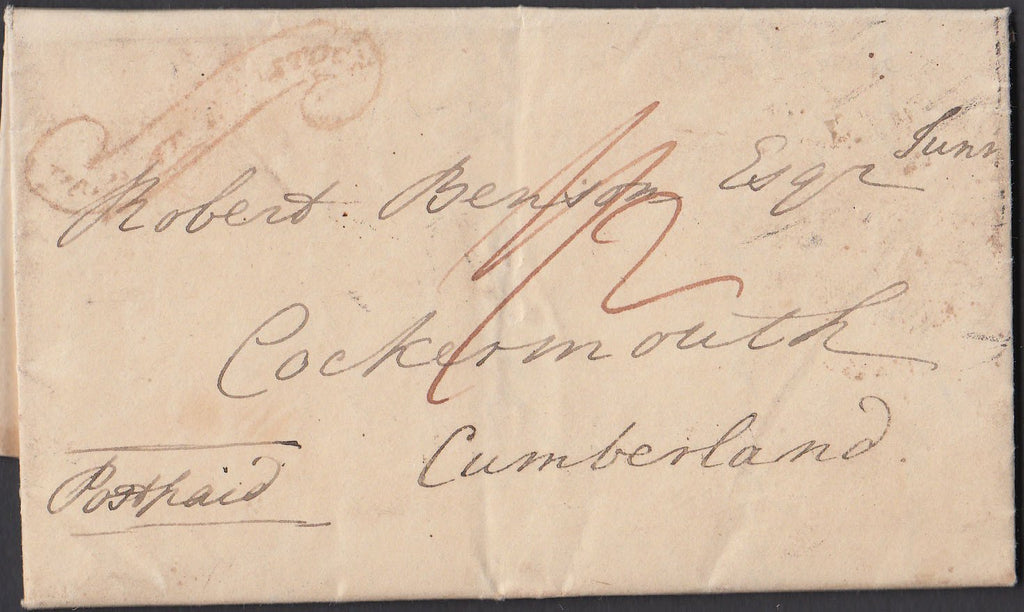 Robert Benson Esqr Junr
Cockermouth
Cumberland.
Postpaid
1/2